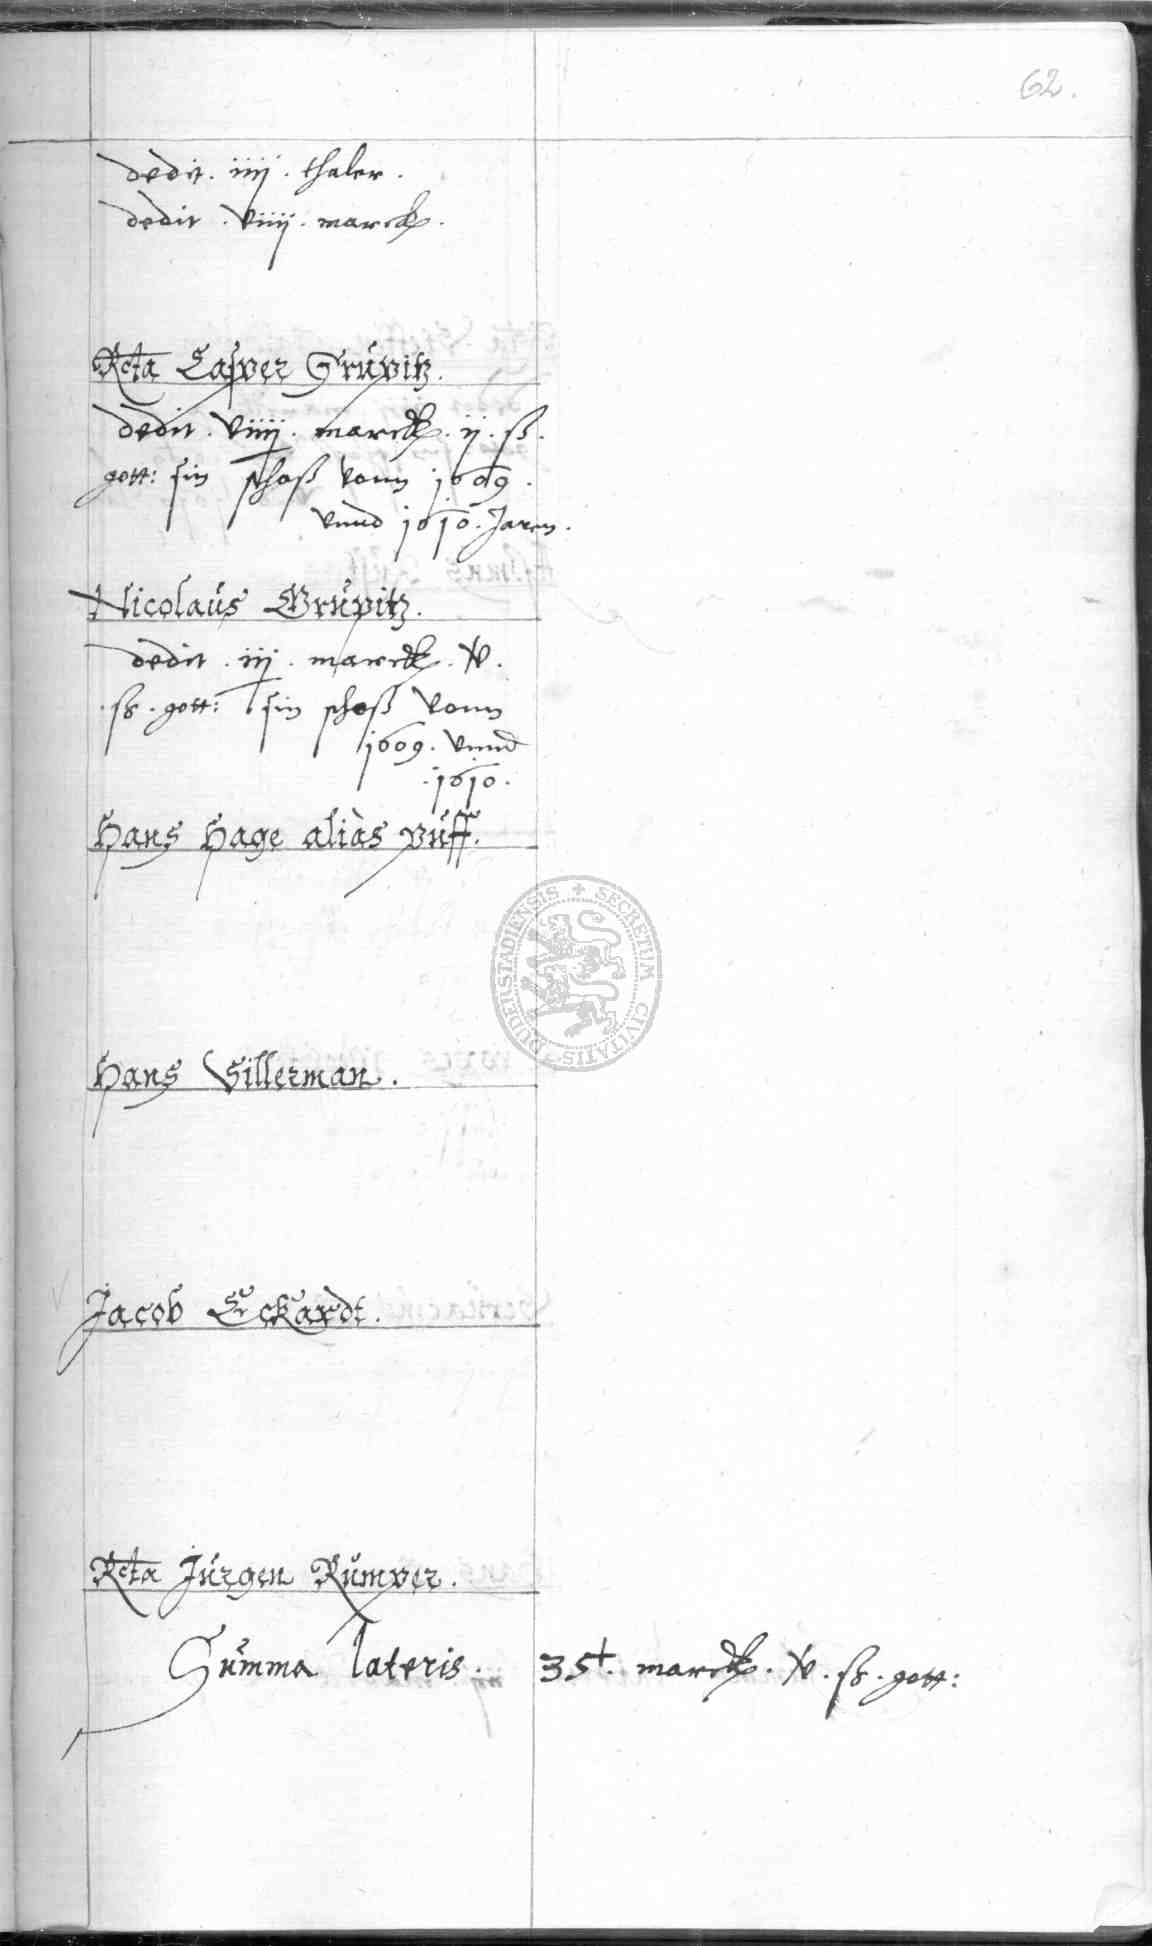 62.
dedit . iiij . thaler .
dedit . Viiij . marck .
Rcta Casper Grupitz .
dedit . Viiij . marck . ij . ß .
gott: sin schoß vonn 1609 .
vnnd 1610 . Jaren .
Nicolaus Grupitz .
dedit . iij . marck . V .
. ß . gott: sin schoß vonn
1609 . vnnd
. 1610 .
Hans Hage alias puff .
Hans Villerman .
Jacob Eckardt .
Rcta Jürgen Rumper .
Summa lateris . 35 . marck . V . ß . gott:
SECRETUM CIVITATIS DUDERSTADIENSIS